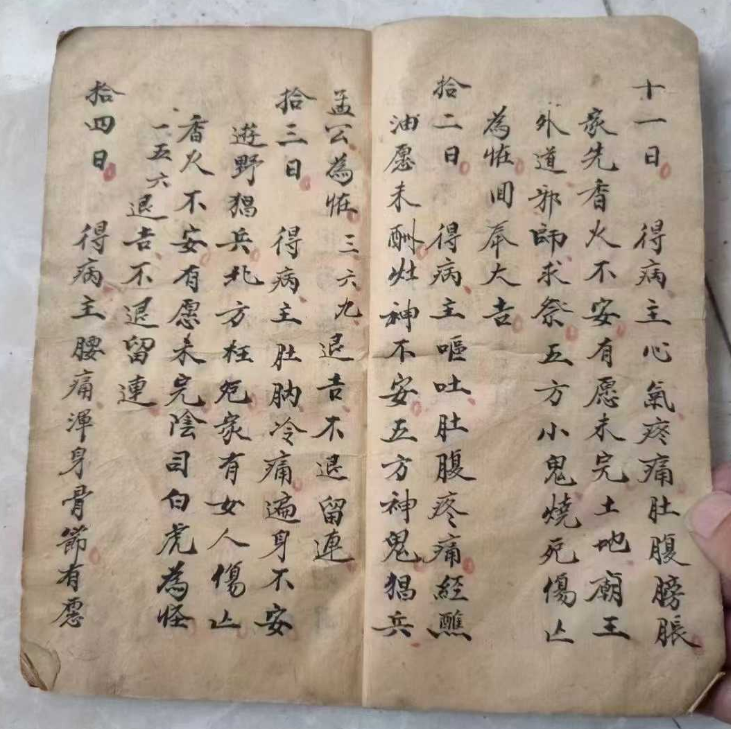 十一日 得病主心氣疼痛肚腹膀脹
家先香火不安有愿未完土地廟王
外道邪師求祭五方小鬼燒死傷亡
為怪囬奉大吉
拾二日 得病主嘔吐肚腹疼痛經醮
油愿未酬灶神不安五方神鬼猖兵
孟公為怪三六九退吉不退留連
拾三日 得病主肚腩冷痛遍身不安
遊野猖兵北方枉死家有女人傷亡
香火不安有愿未完陰司白虎為怪
一五六退吉不退留連
拾四日 得病主腰痛渾身骨節有愿